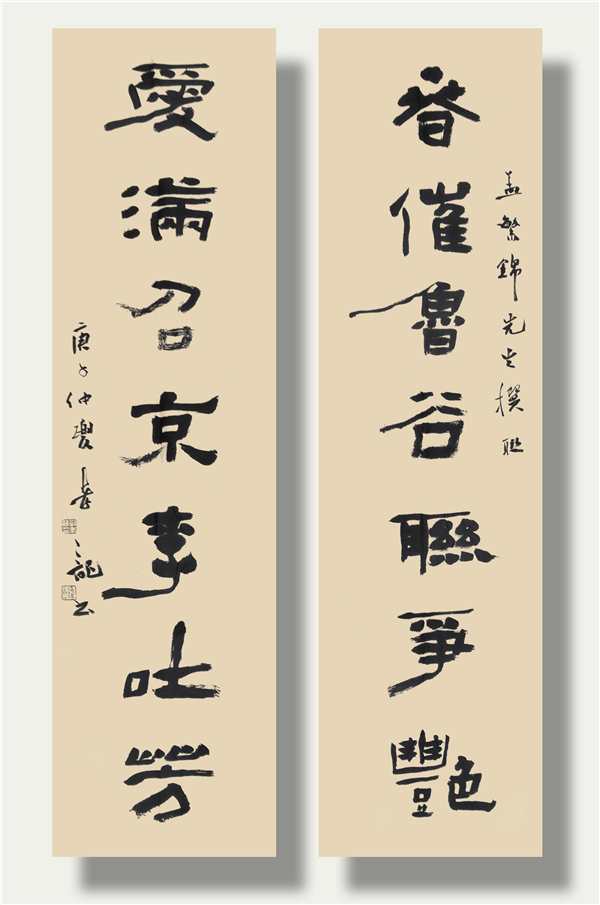 孟繁錦先生撰聯
春催魯谷聯爭艷
愛滿召京李吐芳
庚子仲夏 之龍书